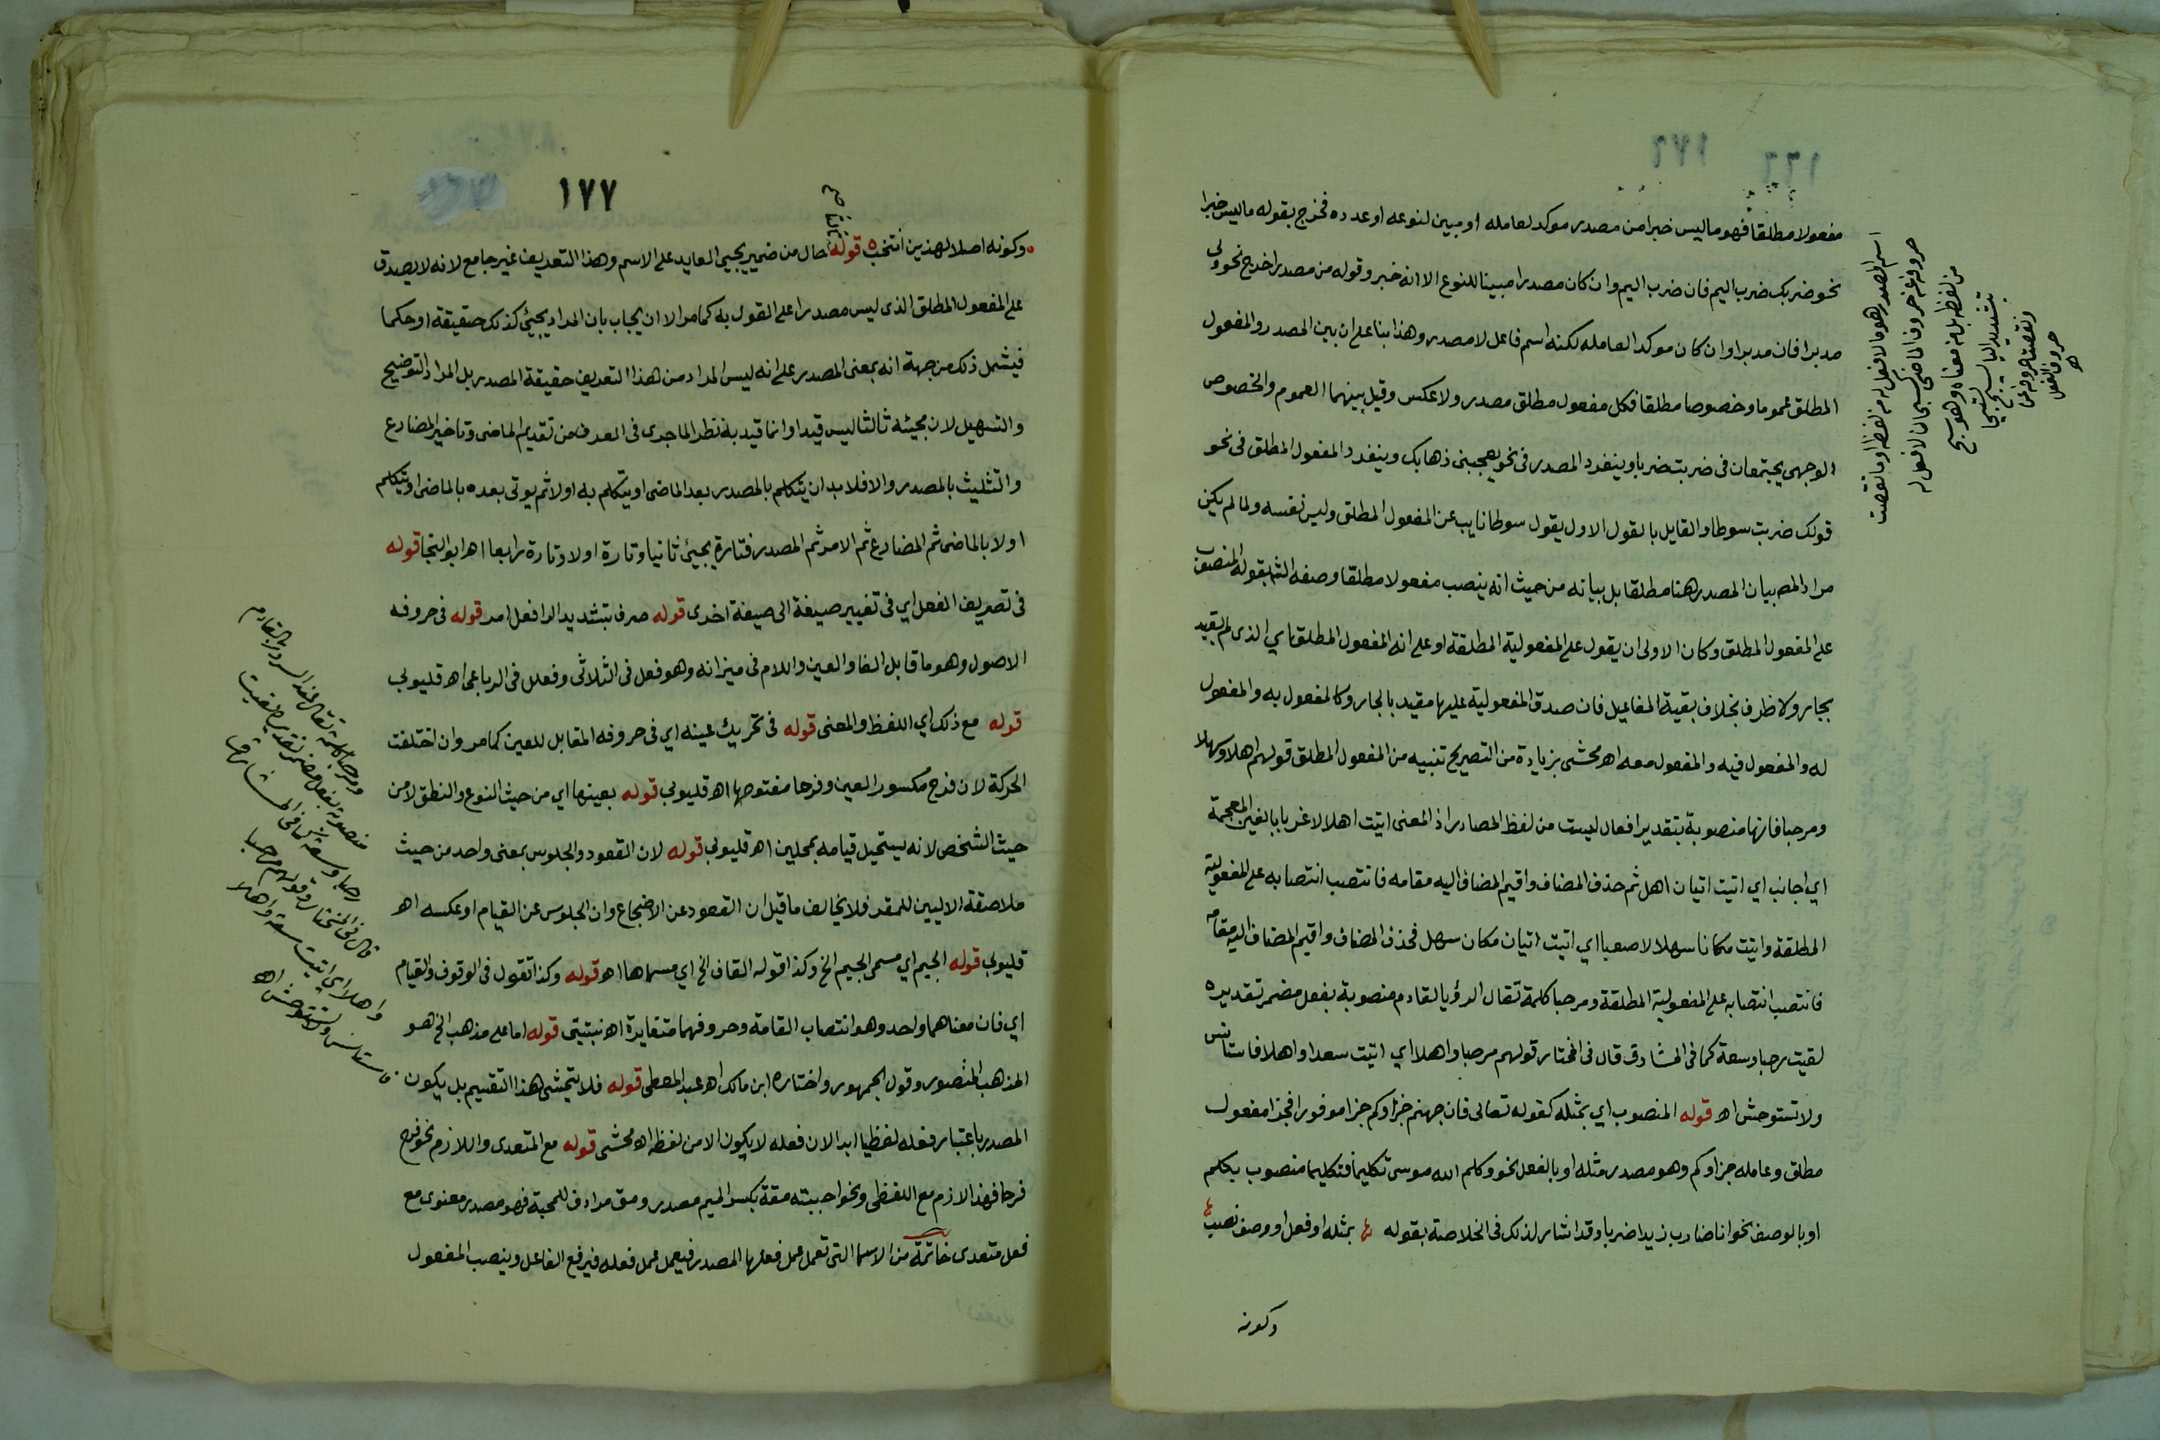 مفعولا مطلقا فهو ما ليس خبرا من مصدر موكد لعامله او مبين لنوعه او عدده فخرج بقوله ما ليس خبرا
نحو ضربك ضرب اليم فان ضرب اليم وان كان مصدرا مبينا للنوع الا انه خبر وقوله من مصدر اخرج نحو ولى
مدبرا فان مدبرا وان كان موكدا لعامله لكنه اسم فاعل لا مصدر وهذا بنا على ان بين المصدر والمفعول
المطلق عموما وخصوصا مطلقا فكل مفعول مطلق مصدر ولا عكس وقيل بينهما العموم والخصوص
الوجهى يجتمعان فى ضربت ضربا وينفرد المصدر فى نحو يعجبنى ذهابك وينفرد المفعول المطلق فى نحو
قولك ضربت سوطا والقايل بالقول الاول يقول سوطا نايب عن المفعول المطلق وليس نفسه ولما لم يكن
مراد المص بيان المصدر هنا مطلقا بل بيانه من حيث انه ينصب مفعولا مطلقا وصفه الش بقوله المنصوب
على المفعول المطلق وكان الاولى ان يقول على المفعولية المطلقة او على انه المفعول المطلق اي الذى لم يقيد
بجار ولا ظرف بخلاف بقية المفاعيل فان صدق المفعولية عليها مقيد بالجار كالمفعول به والمفعول
له والمفعول فيه والمفعول معه اهـ محشى بزيادة من التصريح تنبيه من المفعول المطلق قولهم اهلا وسهلا
ومرحبا فانها منصوبة بتقدير افعال ليست من لفظ المصادر اذ المعنى اتيت اهلا لا غربا بالغين المعجمة
اي اجانب اي اتيت اتيان اهل ثم حذف المضاف واقيم المضاف اليه مقامه فانتصب انتصابه على المفعولية
المطلقة واتيت مكانا سهلا لا صعبا اي اتيت اتيان مكان سهل فحذف المضاف واقيم المضاف اليه مقامه
فانتصب انتصابه على المفعولية المطلقة ومرحبا كلمة تقال الرؤيا لقادم منصوبة بفعل مضمر تقديره
لقيت رحبا وسعة كما فى المشارق قال فى المختار قولهم مرحبا واهلا اي اتيت سعدا واهلا فاستانس
ولا تستوحش اهـ قوله المنصوب اي بمثله كقوله تعالى فان جهنم جزاوكم جزا موفورا فجزا مفعول
مطلق وعامله جزاوكم وهو مصدر مثله او بالفعل نحو وكلم الله موسى تكليما فتكليما منصوب بكلم
او بالوصف نحو انا ضارب زيدا ضربا وقد اشار لذلك فى الخلاصة بقوله بمثله او فعل او وصف نصب
وكونه
اسم المصدر هو ما لا فعل له من لفظه او ما نقصت
حروفه عن حروف الماضى كسبحان لا فعل له
من لفظه بل من معناه وهو سبح
بتشديد اليا يسبح تسبيحا
ونقصت حروفه عن
حروف الفعل
اهـ
١٧٧
وكونه اصلا لهذين انتخب قوله ثالثا حال من ضمير يجيى العايد على الاسم وهذا التعريف غير جامع لانه لا يصدق
على المفعول المطلق الذى ليس مصدرا على القول به كما مر الا ان يجاب بان المراد يجيئ كذلك حقيقة او حكما
فيشمل ذلك من جهة انه بمعنى المصدر على انه ليس المراد من هذا التعريف حقيقة المصدر بل المراد التوضيح
والتسهيل لان مجيئه ثالثا ليس قيدا وانما قيد به نظرا لما جرى فى العرف من تقديم الماضى وتاخير المضارع
والتثليث بالمصدر والا فلا بد ان يتكلم بالمصدر بعد الماضى او يتكلم به اولا ثم يوتى بعده بالماضى او يتكلم
اولا بالماضى ثم المضارع ثم الامر ثم المصدر فتارة يجيئ ثانيا وتارة اولا وتارة رابعا اهـ ابو النجا قوله
فى تصريف الفعل اي فى تغيير صيغة الى صيغة اخرى قوله صرف بتشديد الرا فعل امر قوله فى حروفه
الاصول وهو ما قابل الفا والعين واللام فى ميزانه وهو فعل فى الثلاثى وفعلل فى الرباعى اهـ قليوبى
قوله مع ذلك اي اللفظ والمعنى قوله فى تحريك عينه اي فى حروفه المقابل للعين كما مر وان اختلفت
الحركة لان فرح مكسور العين وفرحا مفتوحها اهـ قليوبى قوله بعينها اي من حيث النوع والنطق لا من
حيث الشخص لانه يستحيل قيامه بمحلين اهـ قليوبى قوله لان القعود والجلوس بمعنى واحد من حيث
ملاصقة الاليين للمقر فلا يخالف ما قيل ان القعود عن الاضجاع وان الجلوس عن القيام او عكسه اهـ
قليوبى قوله الجيم اي مسمى الجيم الخ وكذا قوله القاف الخ اي مسماها اهـ قوله وكذا تقول فى الوقوف والقيام
اي فان معناهما واحد وهو انتصاب القامة وحروفهما متغايرة اهـ نبتيتى قوله اما على مذهب الخ هو
المذهب المنصور وقول الجمهور واختاره ابن مالك اهـ عبد المعطى قوله فلا يتمشى هذا التقسيم بل يكون
المصدر باعتبار فعله لفظيا ابدا لان فعله لا يكون الا من لفظه اهـ محشى قوله مع المتعدى واللازم نحو فرح
فرحا فهذا لازم مع اللفظى ونحو احببته مقة بكسر الميم مصدر ومق مرادف للمحبة فهو مصدر معنوى مع
فعل متعدى خاتمة من الاسما التى تعمل عمل فعلها المصدر فيعمل عمل فعله فيرفع الفاعل وينصب المفعول
ومرحبا كلمة تقال عند السرور بالقادم
منصوبة بفعل مضمر تقديره لقيت
رحبا وسعة كما فى المشارق
قال فى المختار وقولهم مرحبا
واهلا اي اتيت سعة واهلا
فاستانس ولا تستوحش اهـ